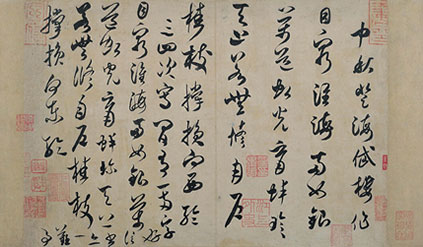 中秋登海岱樓作
目窮淮海兩如銀
萬道虹光育蚌珎
天上若無修月戶
桂枝撐損向西輪
三四次寫間有一兩字
好信
書亦一
難
事
目窮淮海兩如銀萬
道虹光育蚌珎天上
若無修月戶桂枝
撐損向東輪